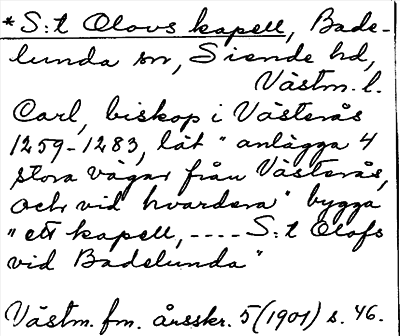 *S:t Olovs kapell, Bade-
lunda sn, Siende hd,
Västm. l.
Carl, biskop i Västerås
1259-1283, lät "anlägga 4
stora vägar från Västerås,
och vid hvardera" bygga
"ett kapell, ---- S:t Olofs
vid Badelunda"
Västm. fm. årsskr. 5(1901) s. 46.